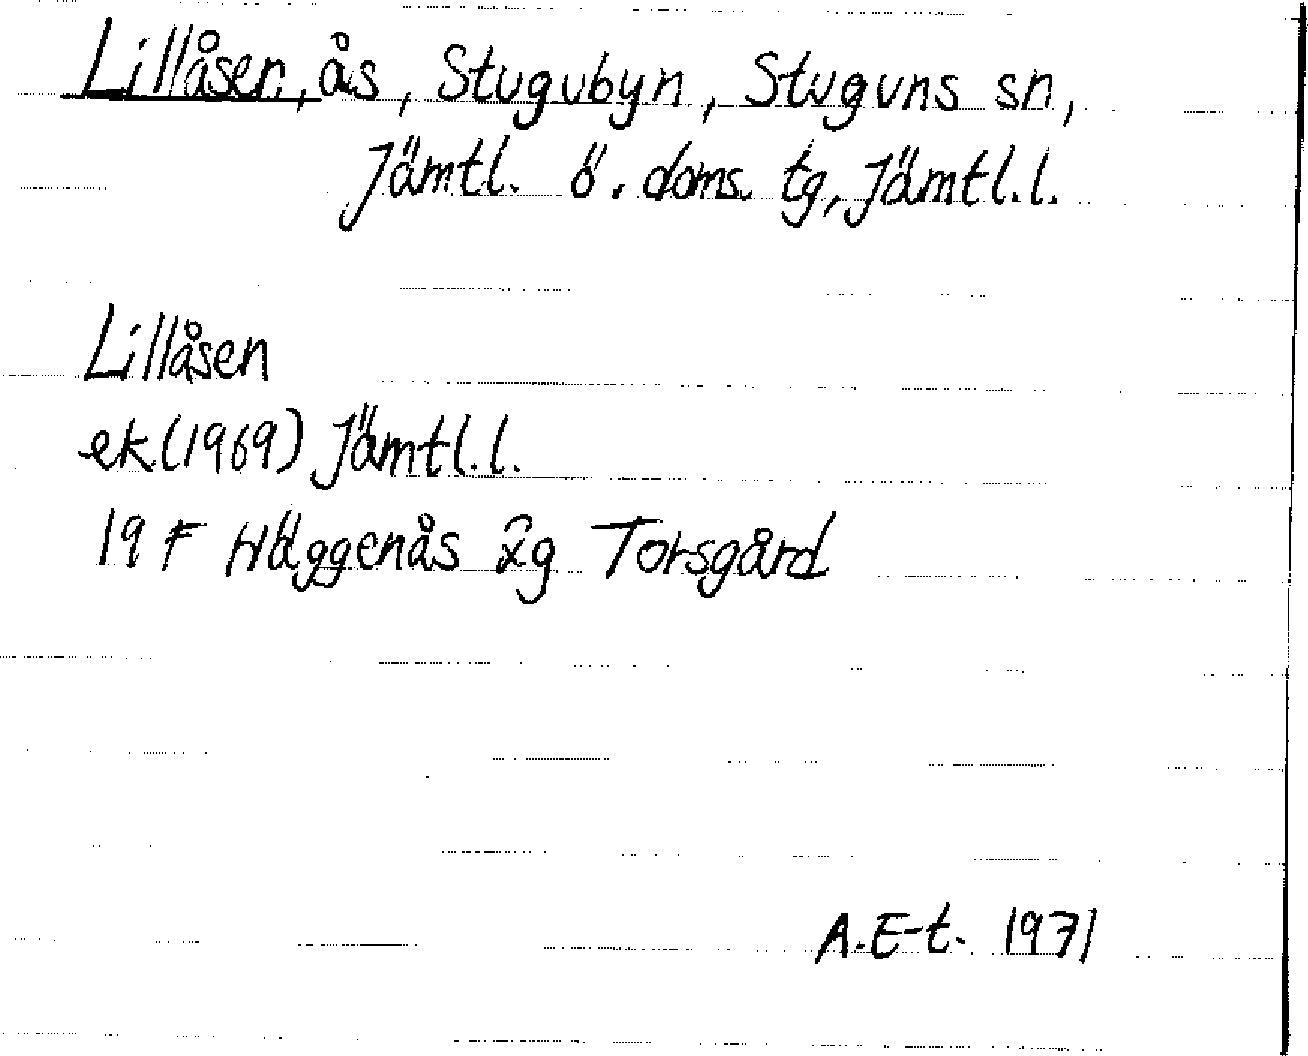 Lillåsen, ås, Stugubyn, Stuguns sn,
Jämtl. ö. doms. tg, Jämtl.l.
Lillåsen
ek(1969) Jämtl.l.
19 F Häggenås 2g Torsgård
A.E-t. 1971